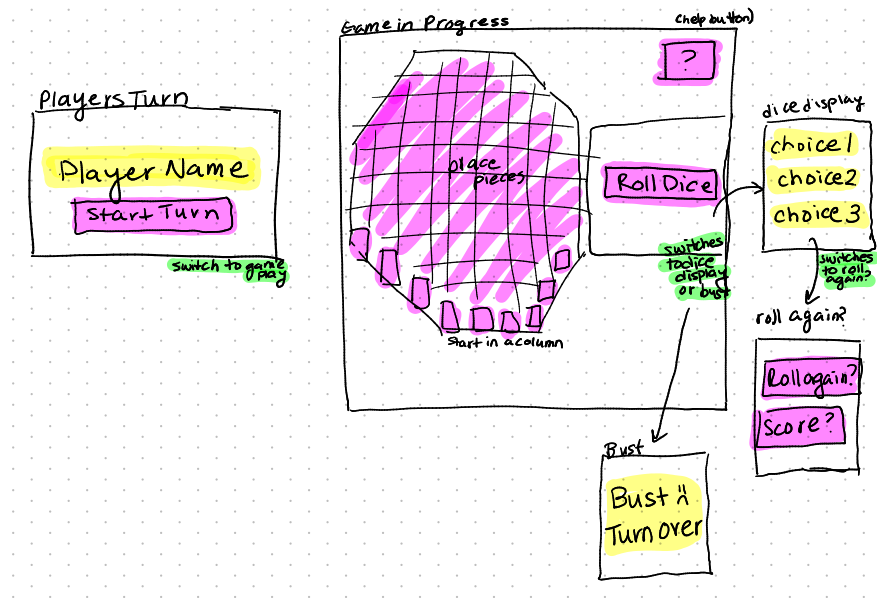 Players Turn
Player Name
Start Turn
switch to game
play
Game in Progress
(help button)
?
place
pieces
Roll Dice
switches
to dice
display
or bust
start in a column
dice display
choice 1
choice 2
choice 3
switches
to roll
again?
roll again?
Roll again?
Score?
Bust
Bust :(
Turn over